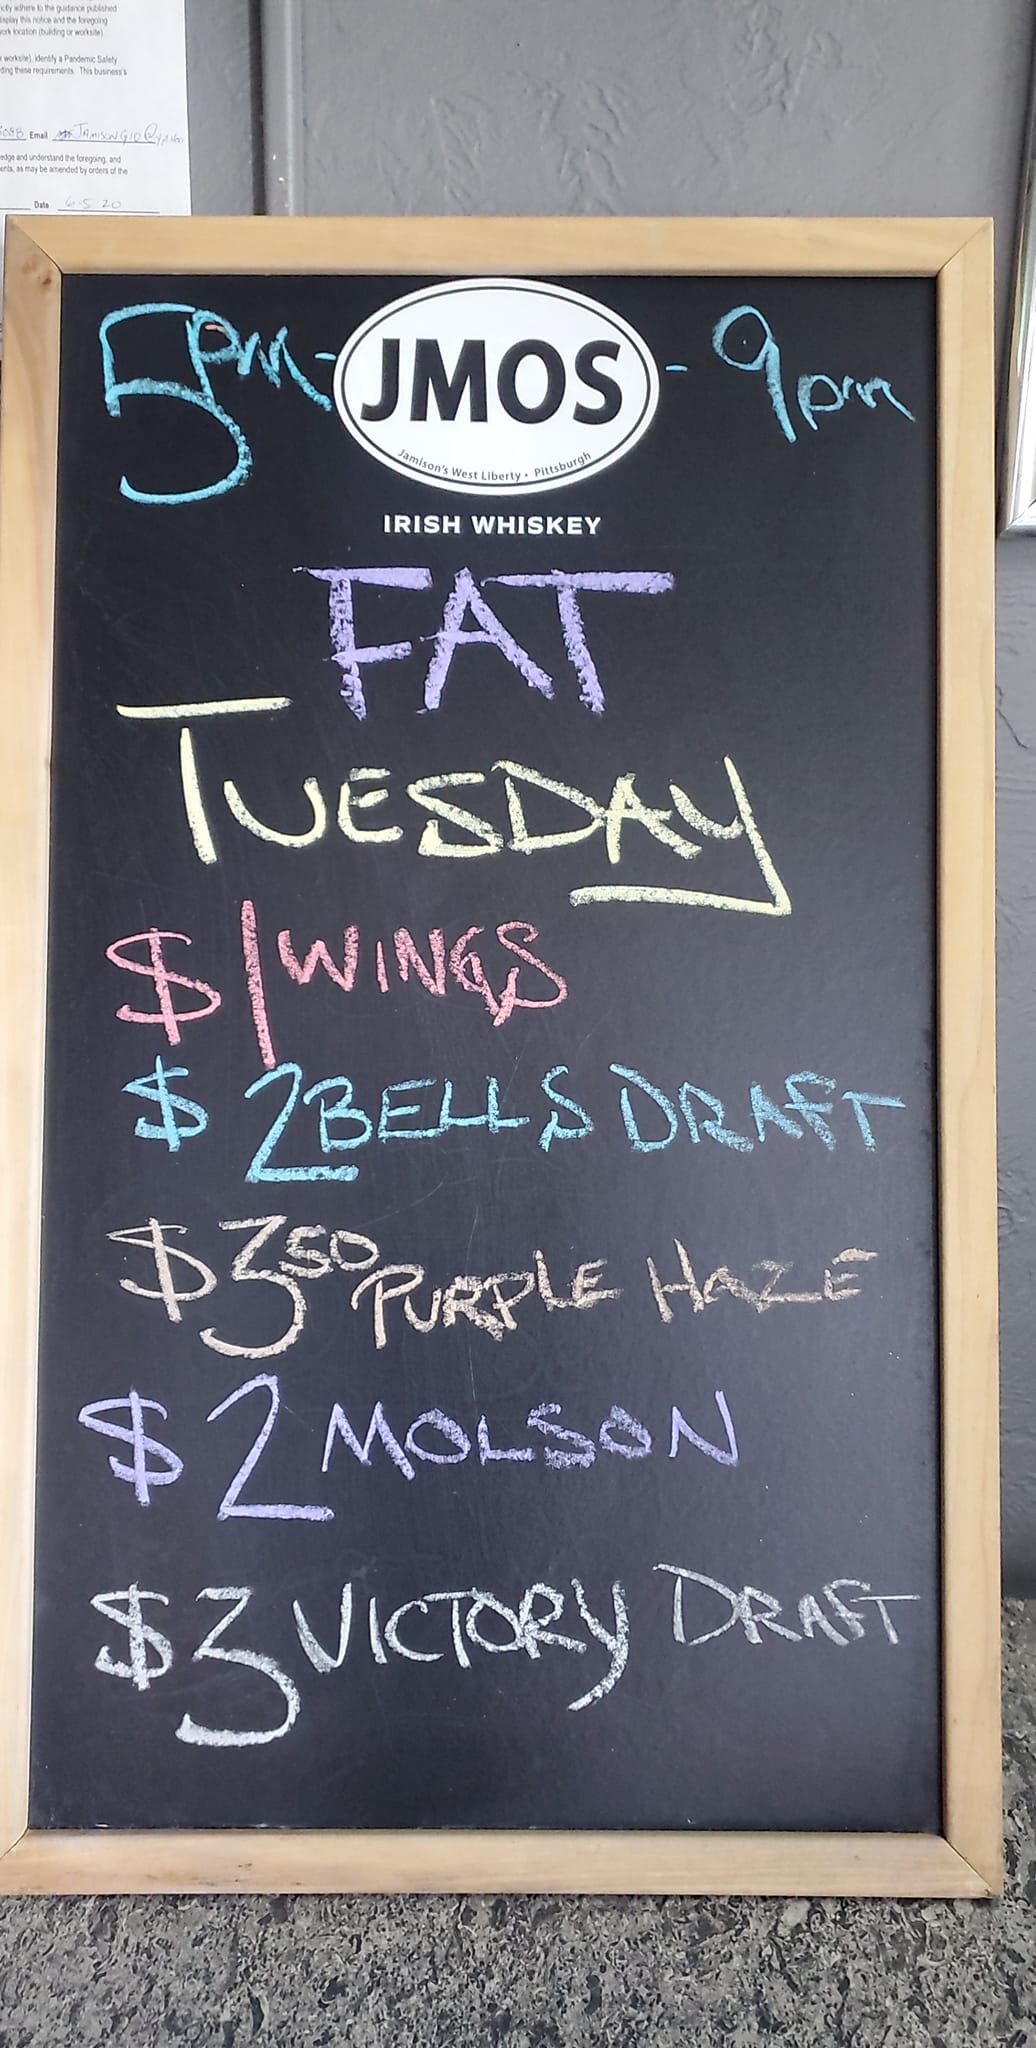 ctly adhere to the guidance published
display this notice and the foregoing
ork location (building or worksite)
worksite), identify a Pandemic Safety
ding these requirements. This business's
Email
edge and understand the foregoing, and
ents, as may be amended by orders of the
Date 6-5 20
5pm - JMOS - 9pm
Jamison's West Liberty • Pittsburgh
IRISH WHISKEY
FAT
TUESDAY
$1 WINGS
$2 BELLS DRAFT
$3 50 PURPLE HAZE
$2 MOLSON
$3 VICTORY DRAFT